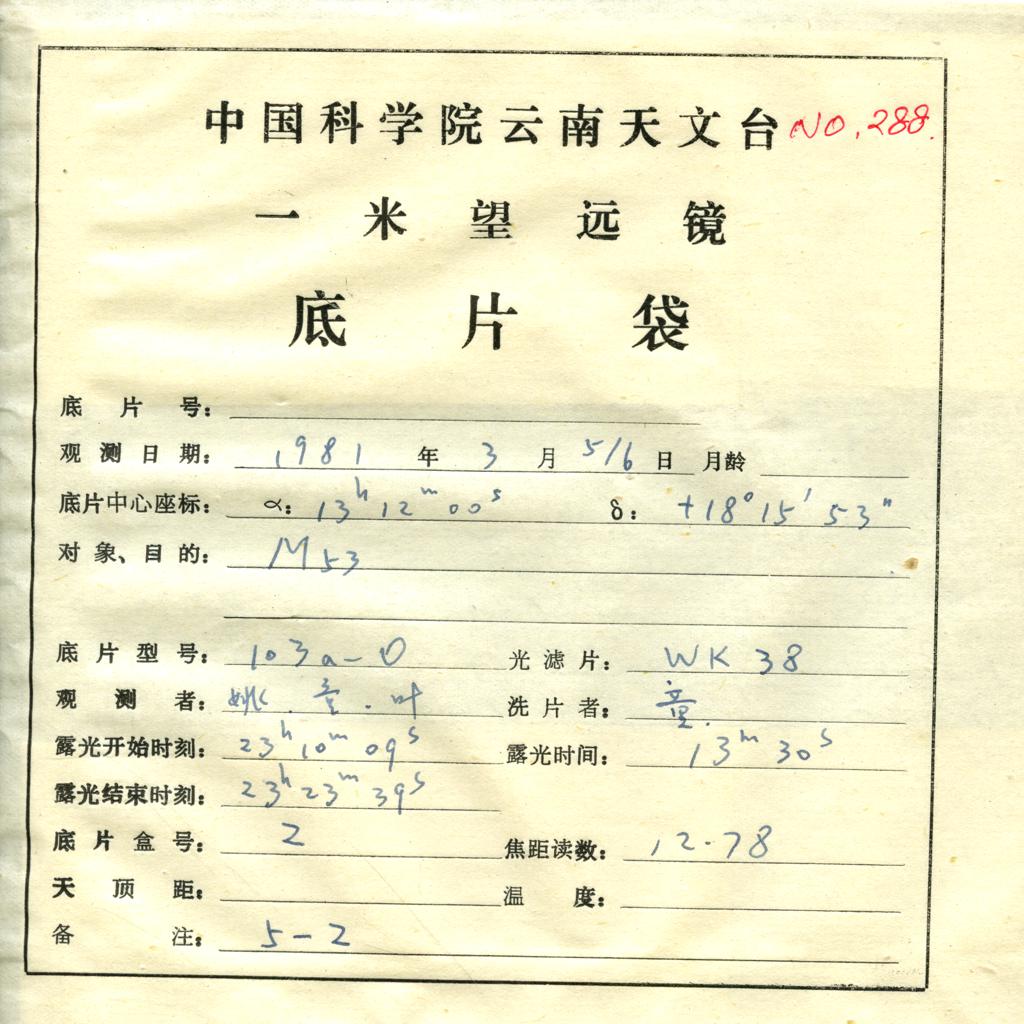 中国科学院云南天文台 NO. 288.
一米望远镜
底片袋
底片号：
观测日期： 1981 年 3 月 5/6 日 月龄
底片中心座标： α： 13h 12m 00s δ： +18° 15′ 53″
对象、目的： M53
底片型号： 103a-O 光滤片： WK 38
观测者： 姚.童.叶 洗片者： 童.
露光开始时刻： 23h 10m 09s 露光时间： 13m 30s
露光结束时刻： 23h 23m 39s
底片盒号： 2 焦距读数： 12.78
天顶距： 温度：
备注： 5-2